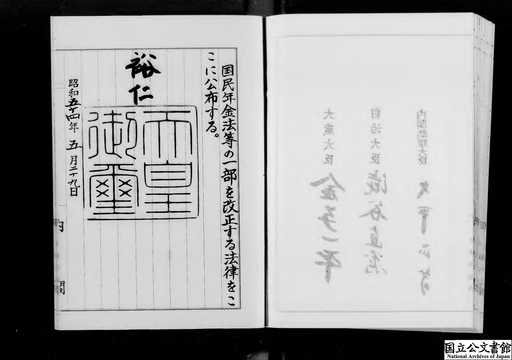 国民年金法等の一部を改正する法律をこ
こに公布する。
裕仁
天皇
御璽
昭和五十四年五月二十九日
内閣
内閣総理大臣
自治大臣 澁谷直藏
大蔵大臣 金子一平
国立公文書館
National Archives of Japan